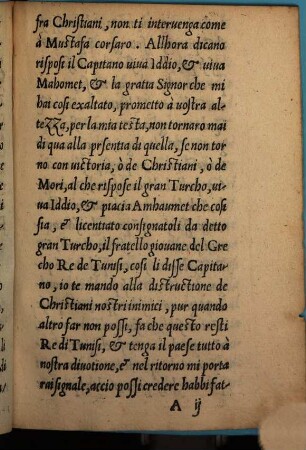 fra Christiani, non ti interuenga come
à Mustafa corsaro. Allhora dicano
rispose il Capitano uiua Iddio, & uiua
Mahomet, & la gratia Signor che mi
hai cosi exaltato, prometto à uostra al-
tezza, per la mia testa, non tornaro mai
di qua alla prsentia di quella, se non tor
no con uictoria, ò de Christiani, ò de
Mori, al che rispose il gran Turcho, ui-
ua Iddio, & piacia Amhaumet che cosi
sia, & licentiato consignatoli da detto
gran Turcho, il fratello giouane del Gre
cho Re de Tunisi, cosi li disse Capita-
no, io te mando alla distructione de
Christiani nostri inimici, pur quando
altro far non possi, fa che questo resti
Re di Tunisi, & tenga il paese tutto à
nostra diuotione, & nel ritorno mi porta
rai signale, accio possi credere habbi fat-
A ij